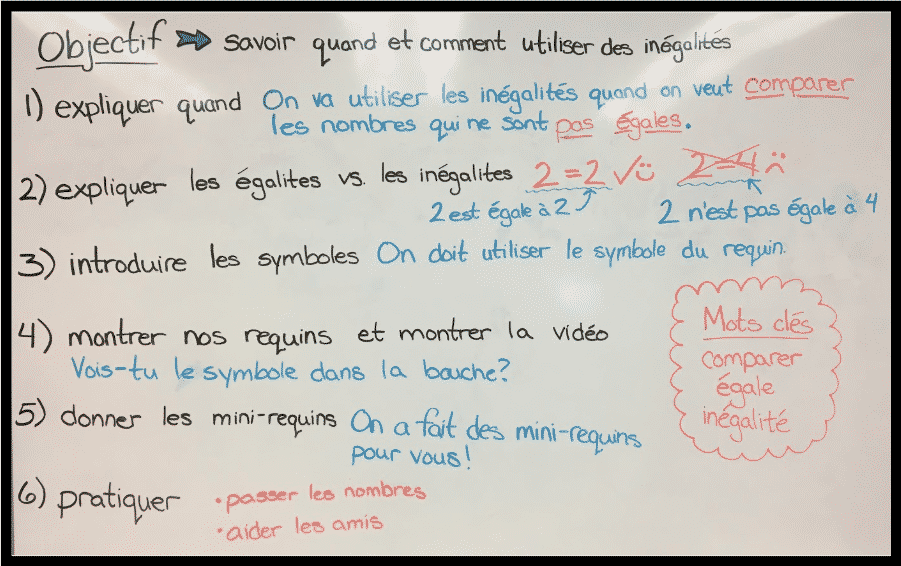 Objectif ➳ savoir quand et comment utiliser des inégalités
1) expliquer quand On va utiliser les inégalités quand on veut comparer
les nombres qui ne sont pas égales.
2) expliquer les égalites vs. les inégalites 2=2 √☺ 2=4 ☹
2 est égale à 2 2 n'est pas égale à 4
3) introduire les symboles On doit utiliser le symbole du requin.
4) montrer nos requins et montrer la vidéo
Vois-tu le symbole dans la bouche?
5) donner les mini-requins On a fait des mini-requins
pour vous!
6) pratiquer • passer les nombres
• aider les amis
Mots clés
comparer
égale
inégalité